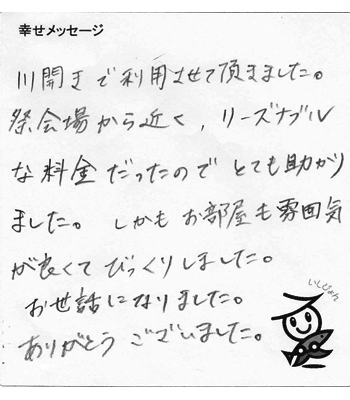 幸せメッセージ
川開きで利用させて頂きました。
祭会場から近く、リーズナブル
な料金だったのでとても助かり
ました。しかもお部屋も雰囲気
が良くてびっくりしました。
お世話になりました。
ありがとうございました。
いしぴょん